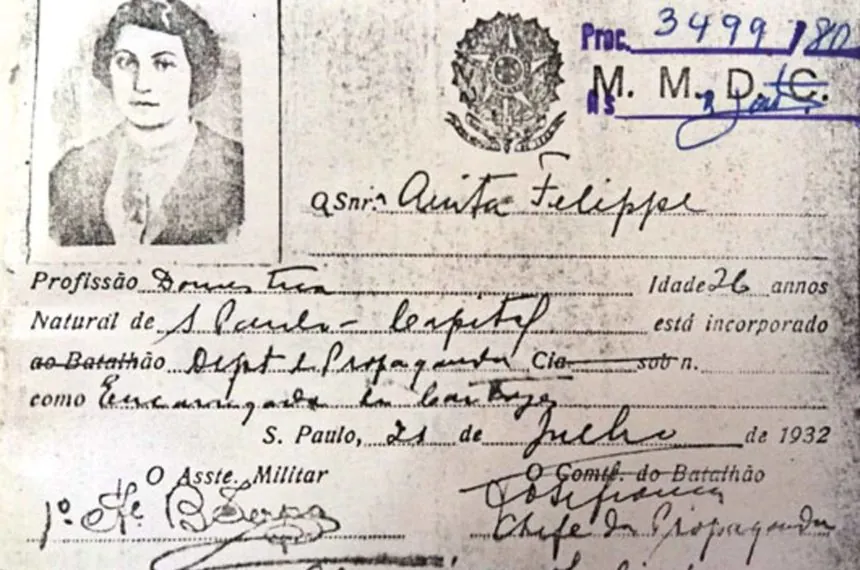 Proc. 3499/80
M. M. D. C.
As
A Snr.ª Anita Felippe
Profissão Domestica Idade 26 annos
Natural de S Paulo - Capital está incorporado
ao Batalhão Dept de Propaganda Cia. sob n.
como Encarregada da
S. Paulo, 21 de Julho de 1932
O Asste. Militar O Comte. do Batalhão
1º
Chefe da Propaganda